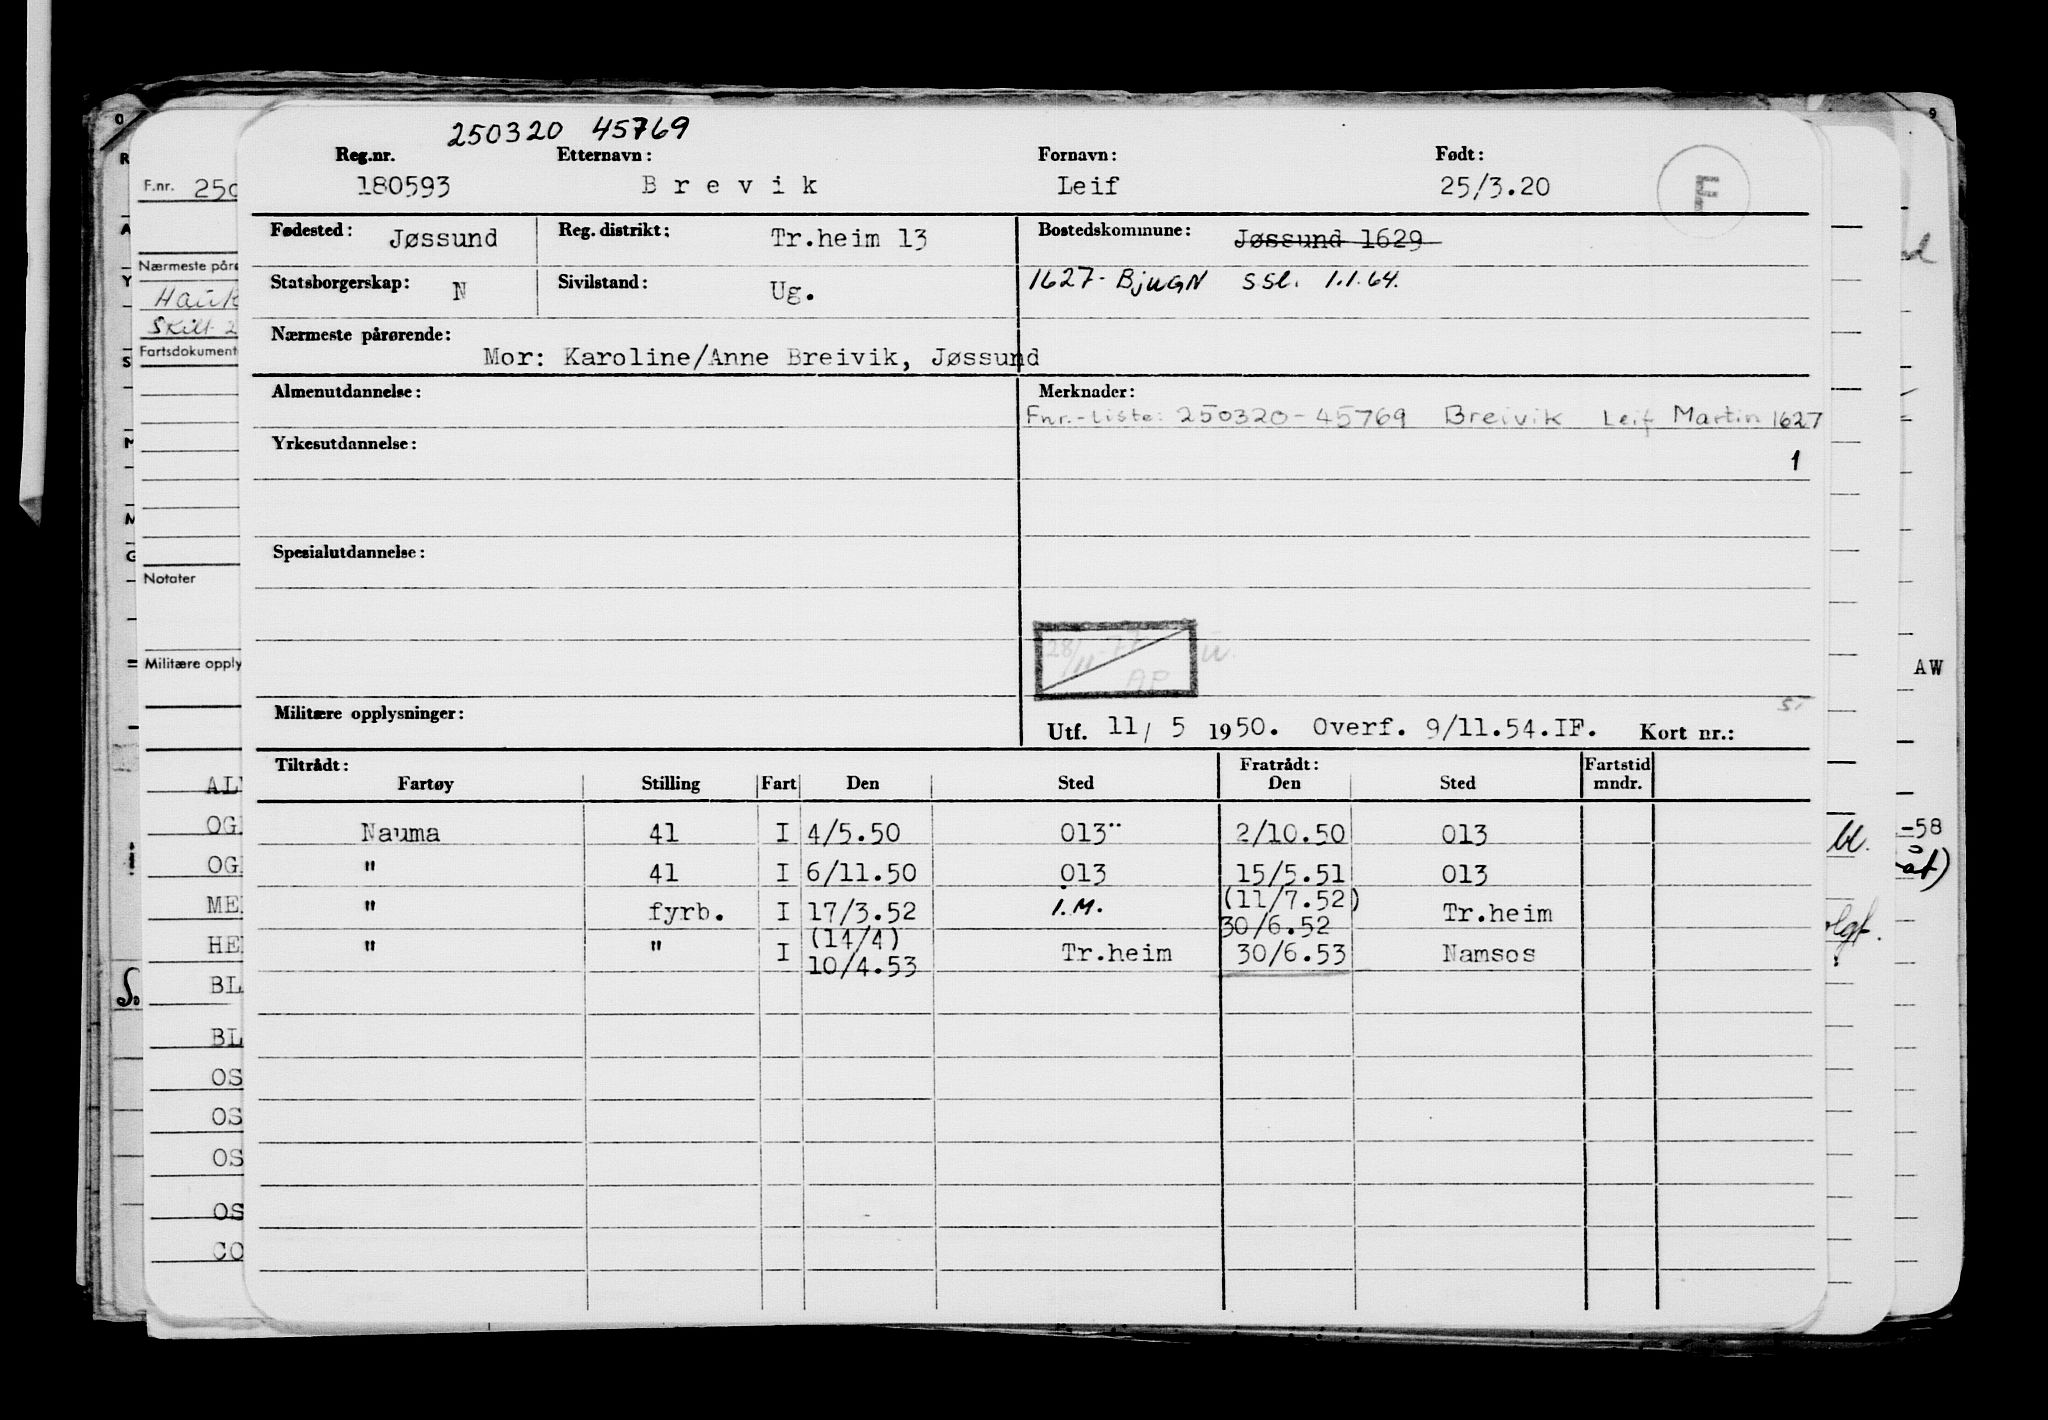 250320 45769
Reg.nr. Etternavn: Fornavn: Født:
180593 Brevik Leif 25/3.20
F
Fødested: Jøssund Reg. distrikt: Tr.heim 13 Bostedskommune: Jøssund 1629
Statsborgerskap: N Sivilstand: Ug. 1627- BjUGN SSl. 1.1.64.
Nærmeste pårørende:
Mor: Karoline/Anne Breivik, Jøssund
Almenutdannelse: Merknader:
Fnr.-liste: 250320-45769 Breivik Leif Martin 1627
Yrkesutdannelse:
1
Spesialutdannelse:
28/11
AP
Militære opplysninger:
Utf. 11/ 5 1950. Overf. 9/11.54.IF. Kort nr.:
Tiltrådt: Fratrådt: Fartstid
Fartøy Stilling Fart Den Sted Den Sted mndr.
Nauma 41 I 4/5.50 013¨ 2/10.50 013
" 41 I 6/11.50 013 15/5.51 013
" fyrb. I 17/3.52 I.M. (11/7.52) 30/6.52 Tr.heim
" " I (14/4) 10/4.53 Tr.heim 30/6.53 Namsos
F.nr. 250
Nærmeste påre
Hauk
Skilt 2
Fartsdokument
Notater
Militære opply
AL
OG
OG
ME
HE
BL
BL
OS
OS
OS
OS
CO
AW
-58
åt)
bl.
olgt.